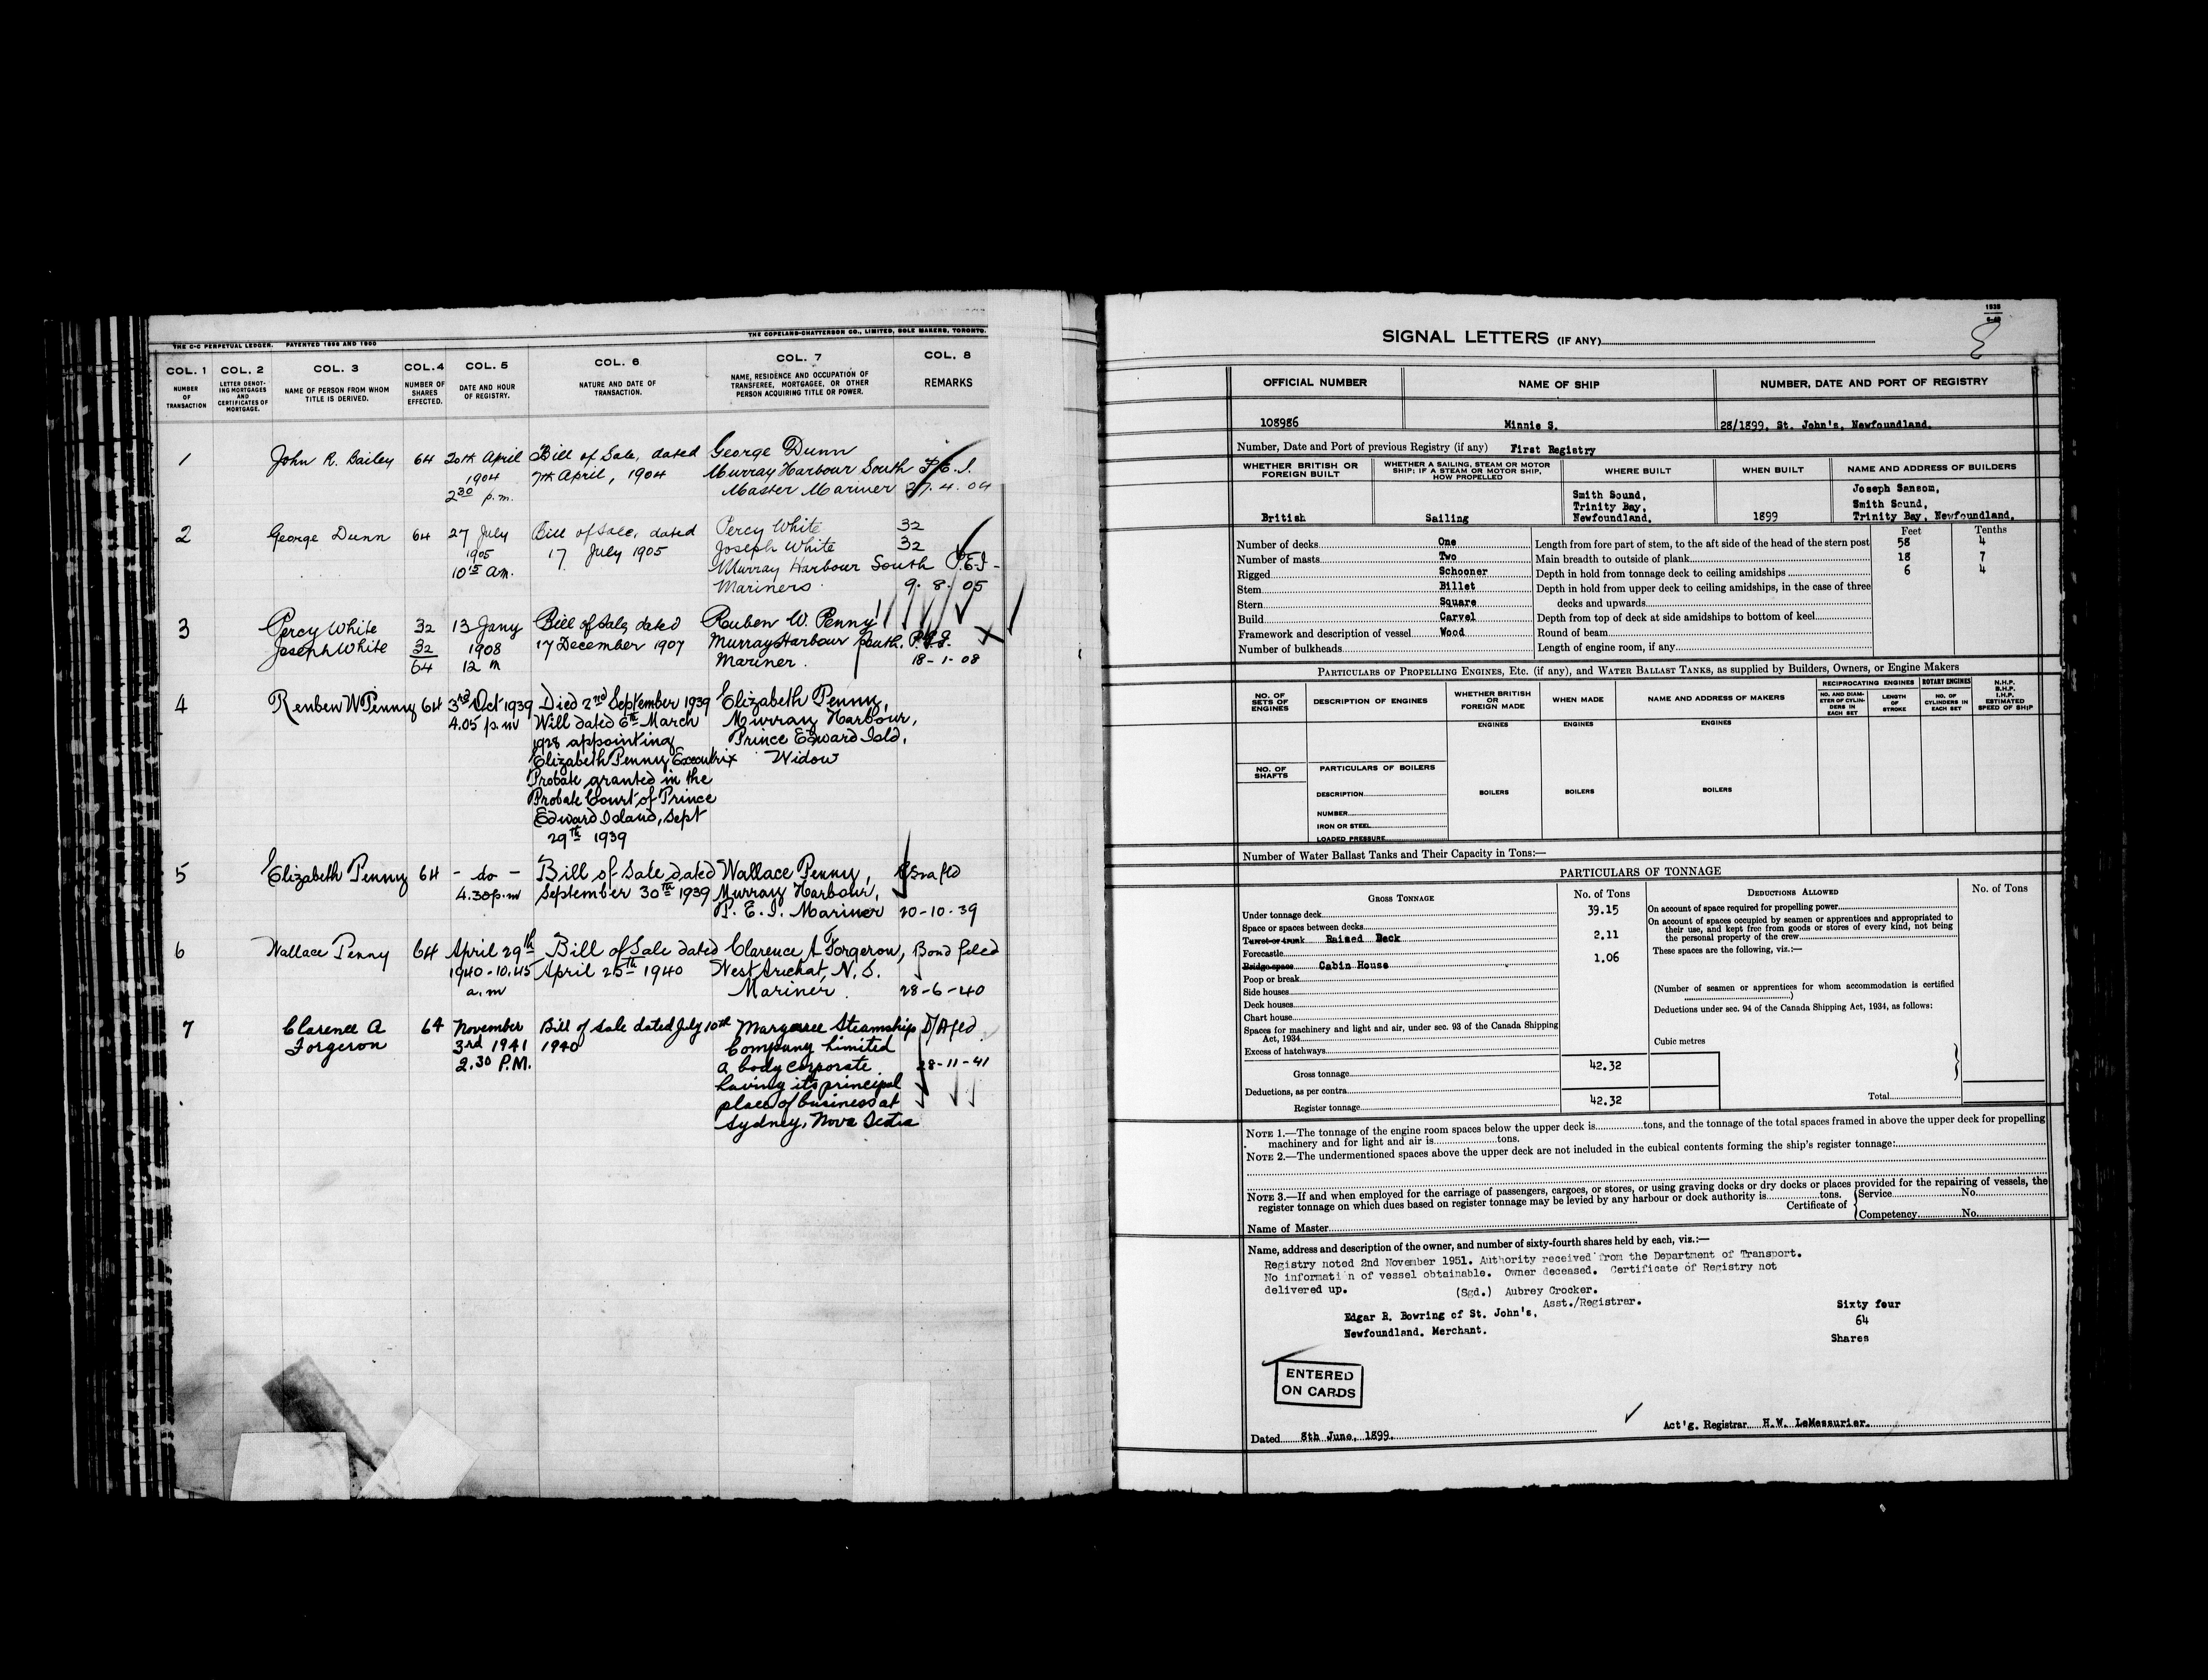 THE C-C PERPETUAL LEDGER. PATENTED 1896 AND 1900
THE COPELAND-CHATTERSON CO., LIMITED, SOLE MAKERS, TORONTO.
COL. 1 COL. 2 COL. 3 COL. 4 COL. 5 COL. 6 COL. 7 COL. 8
NUMBER OF TRANSACTION
LETTER DENOTING MORTGAGES AND CERTIFICATES OF MORTGAGE.
NAME OF PERSON FROM WHOM TITLE IS DERIVED.
NUMBER OF SHARES EFFECTED.
DATE AND HOUR OF REGISTRY.
NATURE AND DATE OF TRANSACTION.
NAME, RESIDENCE AND OCCUPATION OF TRANSFEREE, MORTGAGEE, OR OTHER PERSON ACQUIRING TITLE OR POWER.
REMARKS
1 John R. Bailey 64 20th April Bill of Sale, dated George Dunn
1904 7th April, 1904 Murray Harbour South P.E.I.
2 30 p.m. Master Mariner 27.4.04
2 George Dunn 64 27 July Bill of Sale, dated Percy White 32
1905 17 July 1905 Joseph White 32
10 15 am. Murray Harbour South P.E.I-
Mariners. 9. 8. 05
3 Percy White 32 13 Jany Bill of Sale, dated Ruben W. Penny
Joseph White 32 1908 17 December 1907 Murray Harbour South. P.E.I.
64 12 m Mariner. 18-1-08
4 Reuben W Penny 64 3rd Oct 1939 Died 2nd September 1939 Elizabeth Penny,
4.05 p.m Will dated 6th March Murray Harbour,
1928 appointing Prince Edward Isld,
Elizabeth Penny Executrix Widow
Probate granted in the
Probate Court of Prince
Edward Island, Sept
29th 1939
5 Elizabeth Penny 64 - do - Bill of Sale dated Wallace Penny,
4.30 p.m September 30th 1939 Murray Harbour,
P. E. I. Mariner 20-10-39
6 Wallace Penny 64 April 29th Bill of Sale dated Clarence A Forgeron, Bond filed
1940-10.45 April 25th 1940 West Arichat, N. S.
a.m Mariner. 28-6-40
7 Clarence A 64 November Bill of Sale dated July 10th Margaree Steamship D/A fld
Forgeron 3rd 1941 1940 Company Limited
2.30 P.M. a body corporate 28-11-41
having its principal
place of business at
Sydney, Nova Scotia
1535
SIGNAL LETTERS (IF ANY)
OFFICIAL NUMBER NAME OF SHIP NUMBER, DATE AND PORT OF REGISTRY
108986 Minnie S. 28/1899, St. John's, Newfoundland.
Number, Date and Port of previous Registry (if any) First Registry
WHETHER BRITISH OR FOREIGN BUILT
WHETHER A SAILING, STEAM OR MOTOR SHIP; IF A STEAM OR MOTOR SHIP, HOW PROPELLED
WHERE BUILT WHEN BUILT NAME AND ADDRESS OF BUILDERS
Joseph Sansom,
Smith Sound, Smith Sound,
Trinity Bay, Trinity Bay, Newfoundland.
British Sailing Newfoundland. 1899
Feet Tenths
Number of decks One Length from fore part of stem, to the aft side of the head of the stern post 58 4
Number of masts Two Main breadth to outside of plank 18 7
Rigged Schooner Depth in hold from tonnage deck to ceiling amidships 6 4
Stem Billet Depth in hold from upper deck to ceiling amidships, in the case of three
Stern Square decks and upwards
Build Carvel Depth from top of deck at side amidships to bottom of keel
Framework and description of vessel Wood Round of beam
Number of bulkheads Length of engine room, if any
PARTICULARS OF PROPELLING ENGINES, ETC. (if any), and WATER BALLAST TANKS, as supplied by Builders, Owners, or Engine Makers
NO. OF SETS OF ENGINES
DESCRIPTION OF ENGINES
WHETHER BRITISH OR FOREIGN MADE
WHEN MADE
NAME AND ADDRESS OF MAKERS
RECIPROCATING ENGINES ROTARY ENGINES
NO. AND DIAMETER OF CYLINDERS IN EACH SET
LENGTH OF STROKE
NO. OF CYLINDERS IN EACH SET
N.H.P. B.H.P. I.H.P. ESTIMATED SPEED OF SHIP
ENGINES ENGINES ENGINES
NO. OF SHAFTS
PARTICULARS OF BOILERS
DESCRIPTION BOILERS BOILERS BOILERS
NUMBER
IRON OR STEEL
LOADED PRESSURE
Number of Water Ballast Tanks and Their Capacity in Tons:—
PARTICULARS OF TONNAGE
GROSS TONNAGE No. of Tons DEDUCTIONS ALLOWED No. of Tons
Under tonnage deck 39.15 On account of space required for propelling power
Space or spaces between decks On account of spaces occupied by seamen or apprentices and appropriated to
their use, and kept free from goods or stores of every kind, not being
Turret or trunk Raised Deck 2.11 the personal property of the crew
Forecastle These spaces are the following, viz.:—
Bridge space Cabin House 1.06
Poop or break
Side houses (Number of seamen or apprentices for whom accommodation is certified
Deck houses )
Chart house Deductions under sec. 94 of the Canada Shipping Act, 1934, as follows:
Spaces for machinery and light and air, under sec. 93 of the Canada Shipping
Act, 1934 Cubic metres
Excess of hatchways
Gross tonnage 42.32
Deductions, as per contra
Register tonnage 42.32 Total
NOTE 1.—The tonnage of the engine room spaces below the upper deck is tons, and the tonnage of the total spaces framed in above the upper deck for propelling
machinery and for light and air is tons.
NOTE 2.—The undermentioned spaces above the upper deck are not included in the cubical contents forming the ship's register tonnage:
NOTE 3.—If and when employed for the carriage of passengers, cargoes, or stores, or using graving docks or dry docks or places provided for the repairing of vessels, the
register tonnage on which dues based on register tonnage may be levied by any harbour or dock authority is tons.
Certificate of Service No.
Competency No.
Name of Master
Name, address and description of the owner, and number of sixty-fourth shares held by each, viz.:—
Registry noted 2nd November 1951. Authority received from the Department of Transport.
No informati n of vessel obtainable. Owner deceased. Certificate of Registry not
delivered up. (Sgd.) Aubrey Crocker.
Asst./Registrar.
Edgar R. Bowring of St. John's, Sixty four
Newfoundland. Merchant. 64
Shares
ENTERED
ON CARDS
Act'g. Registrar H.W. LeMessurier.
Dated 8th June, 1899.